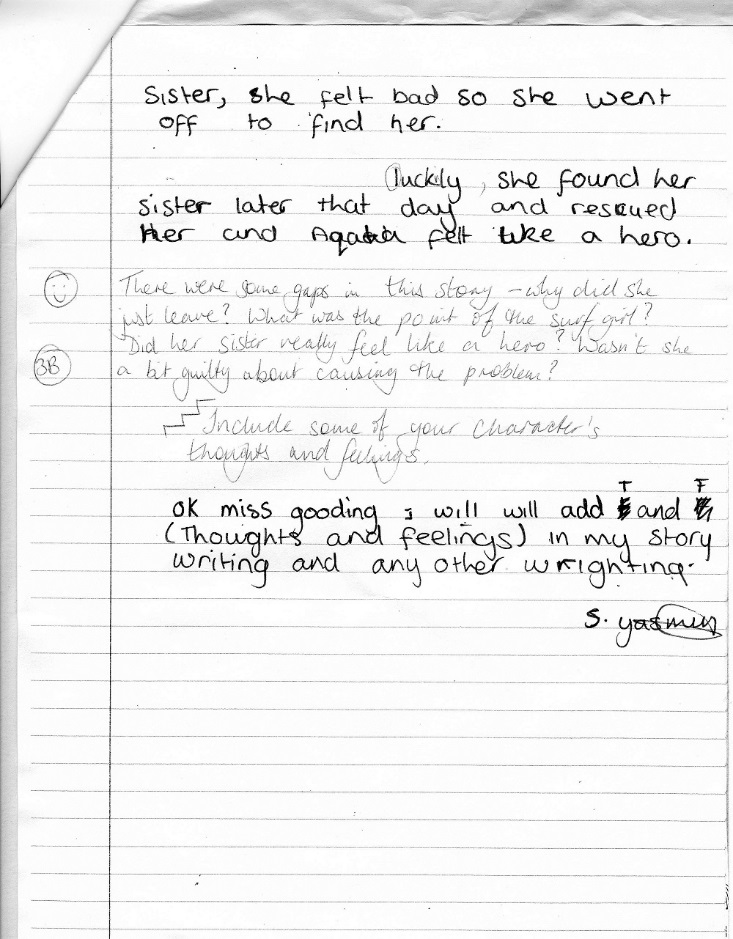 Sister, she felt bad so she went
off to find her.
luckily, she found her
sister later that day and rescued
Her and Agatha felt like a hero.
There were some gaps in this story – why did she
just leave? What was the point of the surf girl?
Did her sister really feel like a hero? Wasn't she
3B
a bit guilty about causing the problem?
Include some of your character's
thoughts and feelings.
T F
ok miss gooding i will will add and
(Thoughts and feelings) in my story
writing and any other wrighting.
S. yasmin